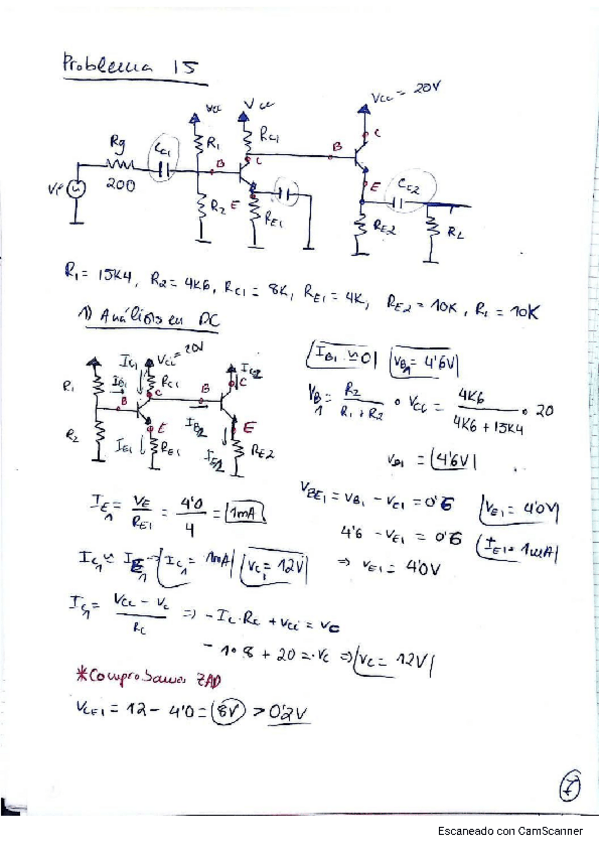 Problema 15
Vcc Vcc Vcc = 20V
Rg CC1 R1 RC1 B C B C
VP 200 R2 E RE1 E CE2 RE2 RL
R1 = 15K4, R2 = 4K6, RC1 = 8K, RE1 = 4K, RE2 = 10K, R1 = 10K
1) Análisis en DC
IB1 ≃ 0 VB1 = 4'6V
IC1 Vcc = 20V IC2
R1 IB1 RC1 C B C
R2 B E IB2 E
IE1 RE1 IE2 RE2
VB1 = R2 / (R1 + R2) · Vcc = 4K6 / (4K6 + 15K4) · 20
VB1 = 4'6V
VBE1 = VB1 - VE1 = 0'6 VE1 = 4'0V
IE1 = VE / RE1 = 4'0 / 4 = 1mA
4'6 - VE1 = 0'6 IE1 = 1mA
⇒ VE1 = 4'0V
IC1 ≃ IE1 → IC1 = 1mA VC1 = 12V
IC1 = (Vcc - Vc) / Rc ⇒ - Ic · Rc + Vcc = Vc
- 1 · 8 + 20 = Vc ⇒ Vc = 12V
*Comprobamos ZAD
VCE1 = 12 - 4'0 = 8V > 0'2V
1
Escaneado con CamScanner